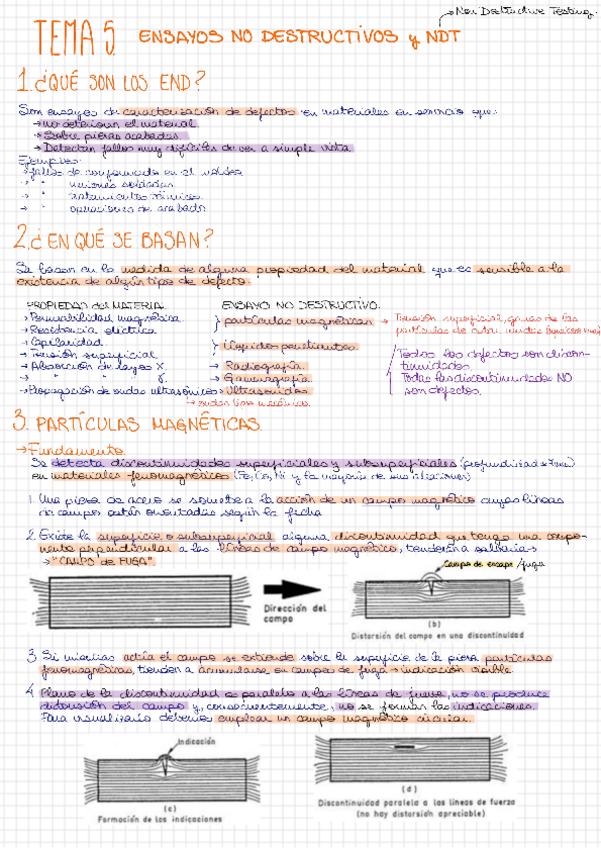 Non Destructive Testing.
TEMA 5 ENSAYOS NO DESTRUCTIVOS y NDT
1. ¿QUÉ SON LOS END?
Son ensayos de caracterización de defectos en materiales en servicio que:
→ no deterioran el material.
→ Sobre piezas acabadas
→ Detectan fallos muy difíciles de ver a simple vista
Ejemplos:
→ fallos de conformado en el moldeo
→ " uniones soldadas
→ " tratamientos térmicos
→ " operaciones de acabado
2. ¿EN QUÉ SE BASAN?
Se basan en la medida de alguna propiedad del material que es sensible a la
existencia de algún tipo de defecto.
PROPIEDAD del MATERIAL ENSAYO NO DESTRUCTIVO.
→ Permeabilidad magnética
→ Resistencia eléctrica
} partículas magnéticas → Tensión superficial, ganas de las
partículas de
→ Capilaridad
→ Tensión superficial
} líquidos penetrantes.
→ Absorción de rayos X → Radiografía.
→ " γ → Gammagrafía.
→ Propagación de ondas ultrasónicas → Ultrasonidos
→ ondas tipo mecánico.
Todos los defectos son discon-
tinuidades.
Todas las discontinuidades NO
son defectos.
3. PARTÍCULAS MAGNÉTICAS
→ Fundamento
Se detecta discontinuidades superficiales y subsuperficiales
en materiales ferromagnéticos (Fe, Co, Ni y la mayoría de sus aleaciones)
1. Una pieza de acero se somete a la acción de un campo magnético cuyas líneas
de campo están orientadas según la flecha
2. Existe la superficie o subsuperficial alguna discontinuidad que tenga una compo-
nente perpendicular a las líneas de campo magnético, tenderán a saltarlas
→ "CAMPO de FUGA"
Campo de escape/fuga
Dirección del
campo
(b)
Distorsión del campo en una discontinuidad
3. Si mientras actúa el campo se extiende sobre la superficie de la pieza partículas
ferromagnéticas, tienden a acumularse en campos de fuga → indicación visible.
4. Plano de la discontinuidad es paralelo a las líneas de fuerza, no se produce
distorsión del campo y, consecuentemente, no se forman las indicaciones.
Para visualizarlo debemos emplear un campo magnético circular.
Indicación
(c)
Formación de las indicaciones
(d)
Discontinuidad paralela a las líneas de fuerza
(no hay distorsión apreciable)